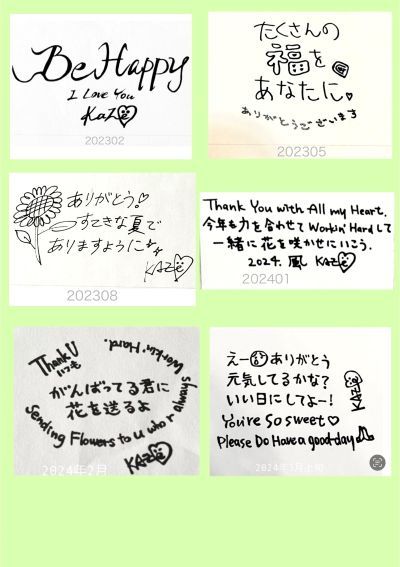 Be Happy
I Love You
KaZe
202302
たくさんの
福を
あなたに
ありがとうございます
202305
ありがとう!
すてきな夏で
ありますように
KAZe
202308
Thank You with All my Heart.
今年も力を合わせて Workin' Hard して
一緒に花を咲かせにいこう。
2024. 風 KAZe
202401
Thank U
いつも
Workin' Hard.
がんばってる君に
花を送るよ
Sending Flowers to U who r always
KAZe
2024年2月
えー ありがとう
元気してるかな?
いい日にしてよー!
You're So sweet
Please Do Have a good day
KAZe
2024年3月上旬